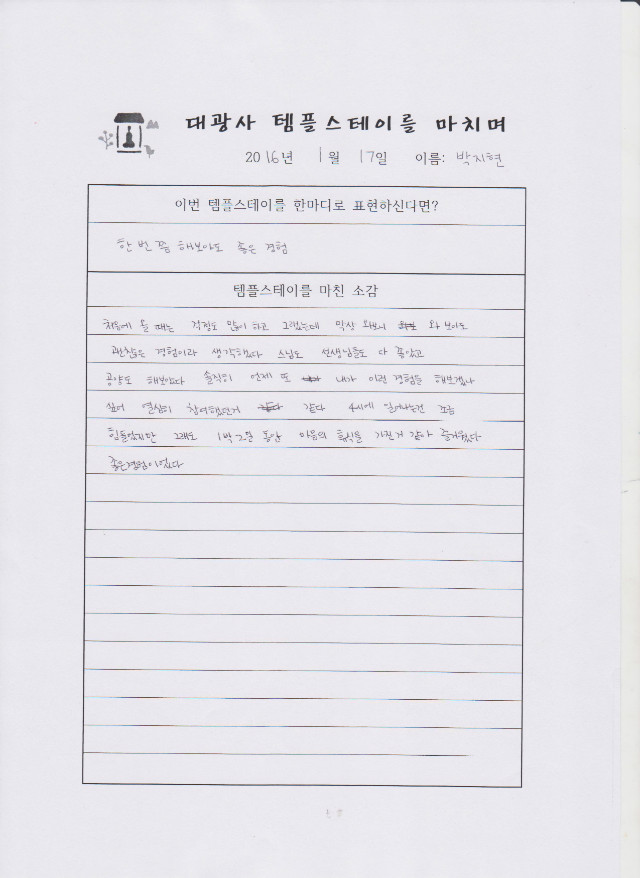 대광사 템플스테이를 마치며
2016년 1월 17일 이름: 박지현
이번 템플스테이를 한마디로 표현하신다면?
한번쯤 해보아도 좋은 경험
템플스테이를 마친 소감
처음에 올 때는 걱정도 많이 하고 그랬는데 막상 와보니 와 보아도
괜찮은 경험이라 생각했다 스님도 선생님들도 다 좋았고
공양도 해보았다 솔직히 언제 또 내가 이런 경험을 해보겠나
싶어 열심히 참여했던거 같다 4시에 일어나는건 조금
힘들었지만 그래도 1박2일 동안 마음의 휴식을 가진거 같아 즐거웠다
좋은경험이었다